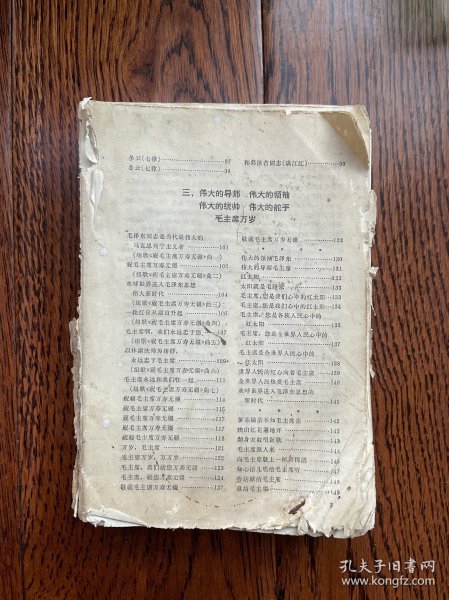 冬云(七律)……………………97
冬云(七律)……………………98
和郭沫若同志(满江红)………99
三、伟大的导师 伟大的领袖
伟大的统帅 伟大的舵手
毛主席万岁
毛泽东同志是当代最伟大的
马克思列宁主义者…………101
(组歌《祝毛主席万寿无疆》曲一)
祝毛主席万寿无疆……………102
(组歌《祝毛主席万寿无疆》曲二)
欢呼世界进入毛泽东思想
伟大新时代…………………104
(组歌《祝毛主席万寿无疆》曲三)
一轮红日从韶山升起…………106
(组歌《祝毛主席万寿无疆》曲四)
毛主席啊，我们永远忠于您……107
(组歌《祝毛主席万寿无疆》曲五)
永远忠于毛主席………………109
(组歌《祝毛主席万寿无疆》曲六)
毛主席永远和我们在一起……111
(组歌《祝毛主席万寿无疆》曲七)
祝福毛主席万寿无疆…………114
祝毛主席万寿无疆……………115
祝毛主席万寿无疆……………117
祝毛主席万寿无疆……………117
祝福毛主席万寿无疆…………118
万岁，毛主席…………………121
毛主席万岁，万万岁…………122
毛主席，我们祝您万寿无疆…123
毛主席，祝您万寿无疆………124
敬祝毛主席万寿无疆…………127
敬祝毛主席万寿无疆…………128
伟大的领袖毛泽东……………130
伟大的导师毛主席……………131
红太阳…………………………132
太阳就是毛泽东………………133
毛主席，您是我们心中的红太阳…134
毛主席，您是我们心中的红太阳…134
毛主席，您是各族人民心中的
红太阳
毛主席，您是全世界人民心中的
红太阳
毛主席是全世界人民心中的
红太阳
世界人民的红心向着毛主席…139
全世界人民热爱毛主席………140
欢呼世界进入毛泽东思想的
新时代…………………………141
翻身农奴唱新歌
毛主席派人来…………………144
知心话儿唱给毛主席听
献给毛主席……………………149
3
孔夫子旧书网
www.kongfz.com